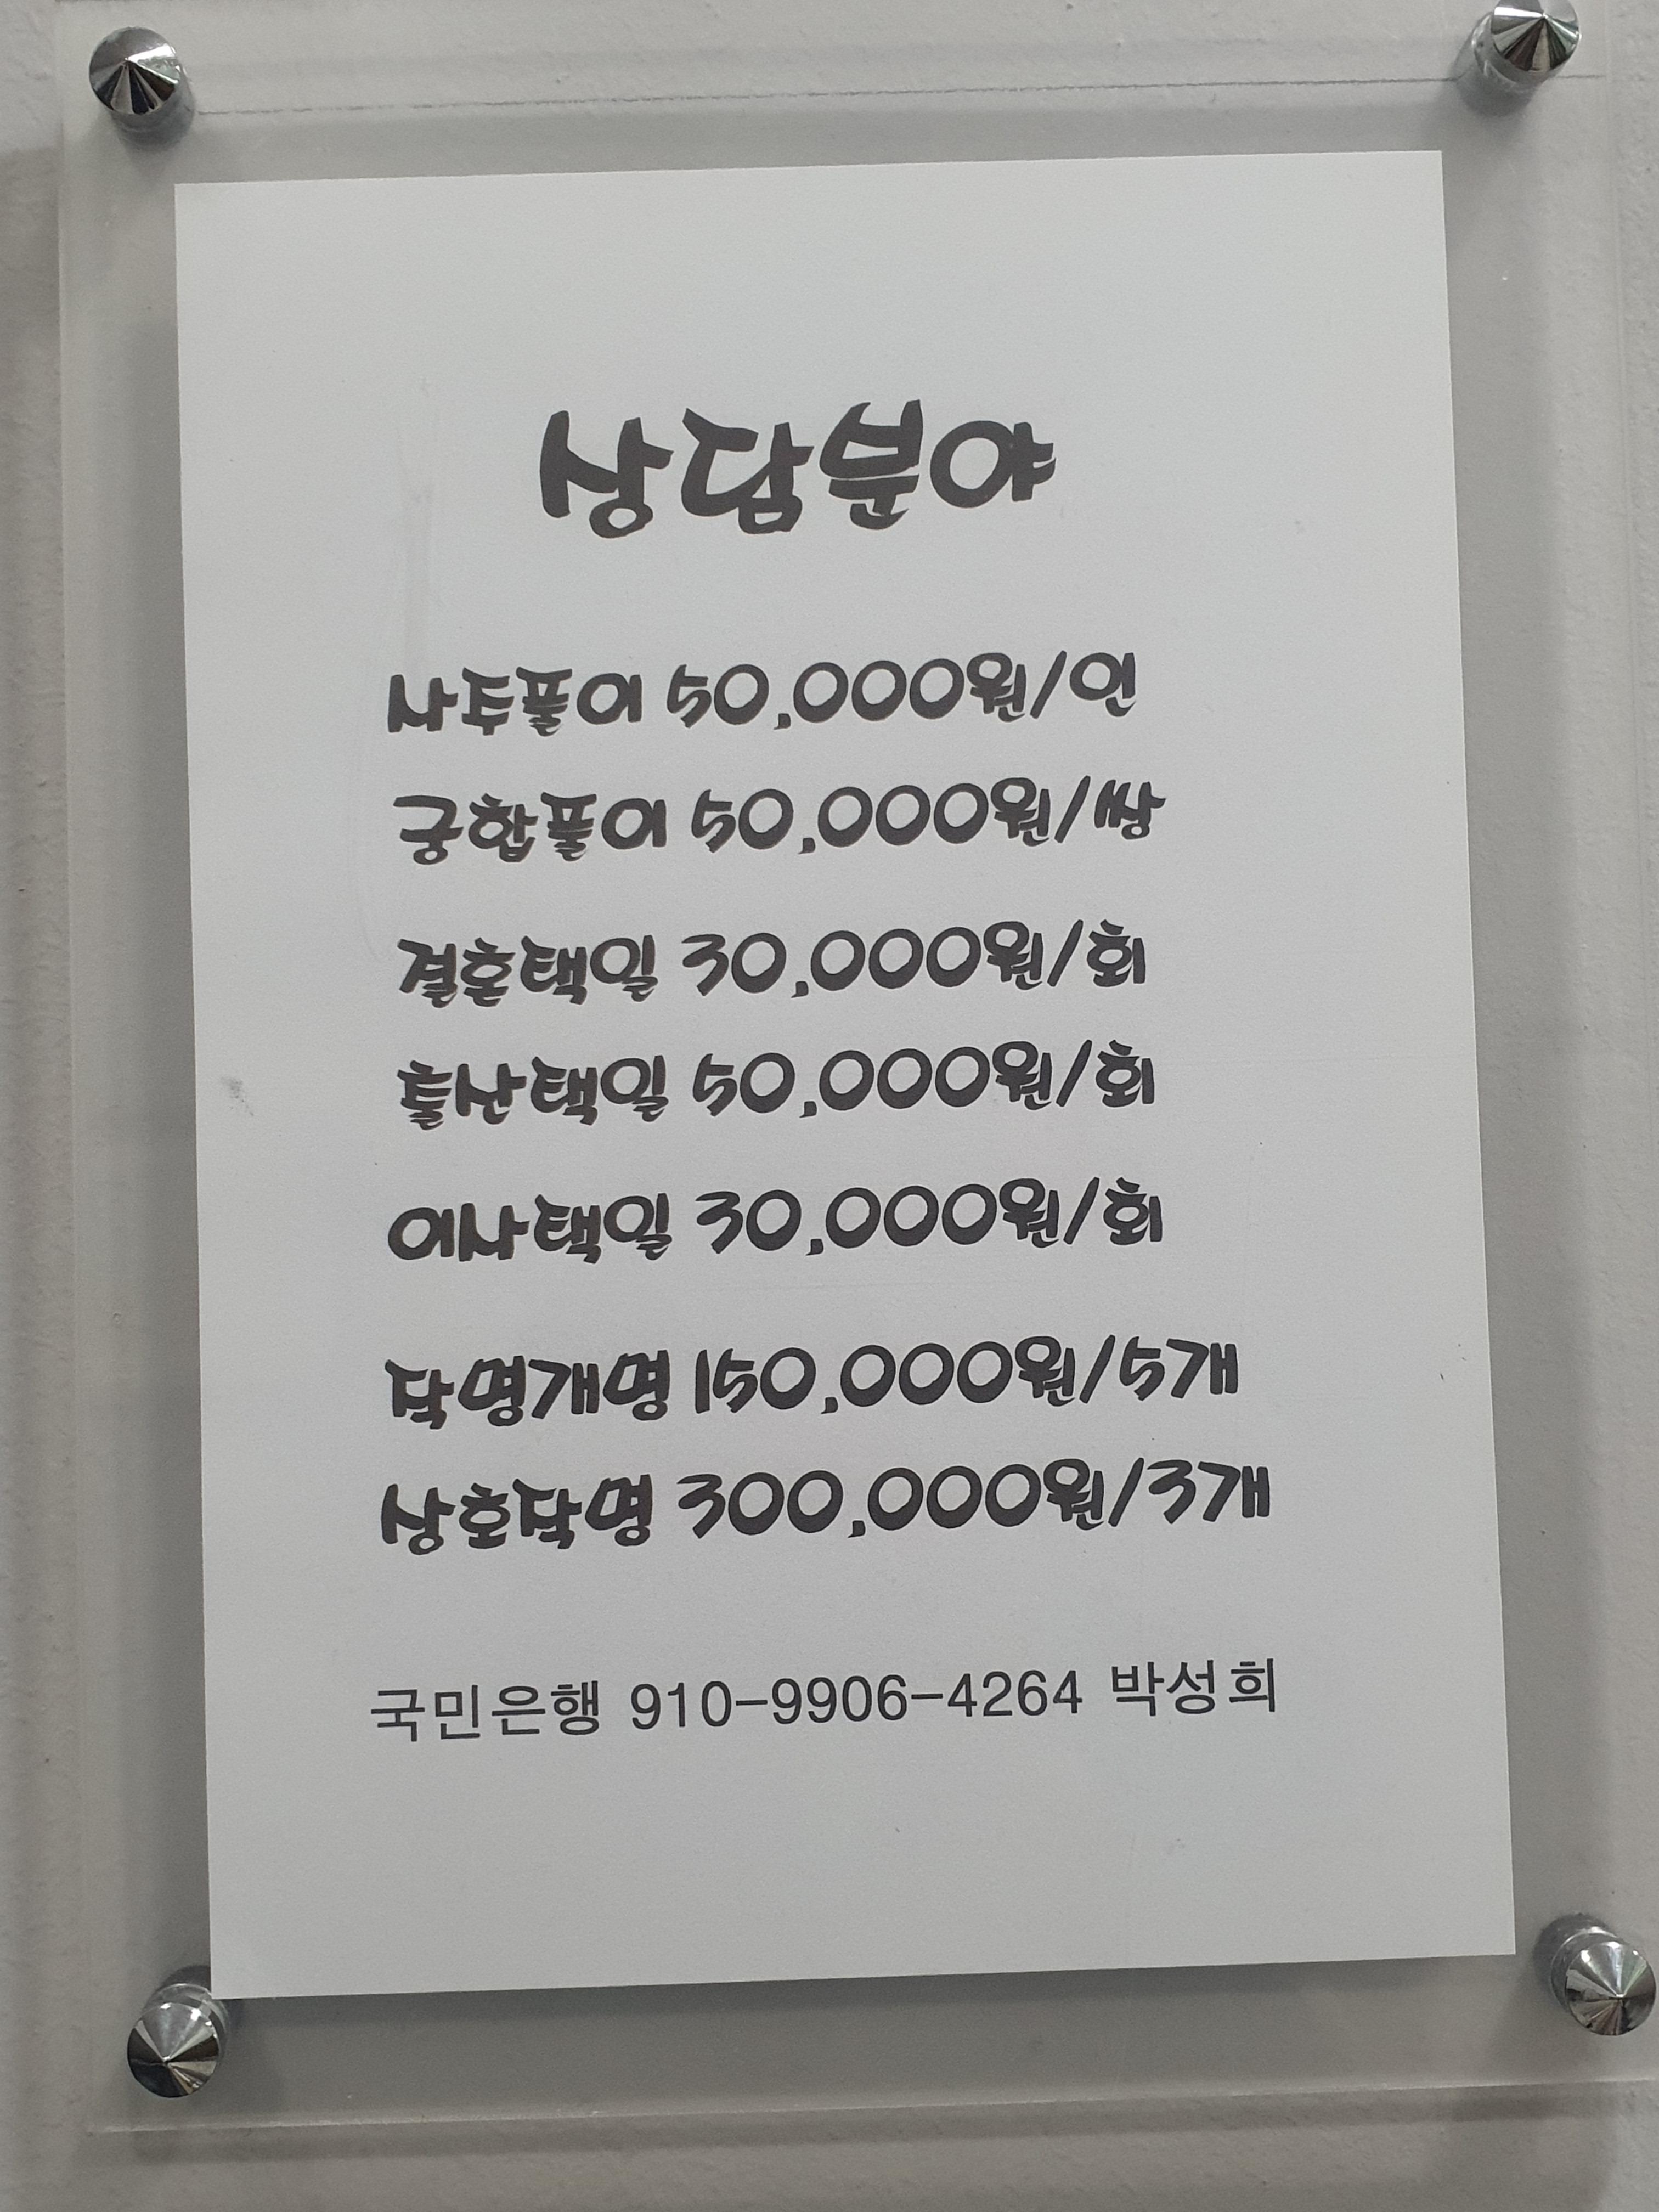 상담분야
사주풀이 50,000원/인
궁합풀이 50,000원/쌍
결혼택일 30,000원/회
출산택일 50,000원/회
이사택일 30,000원/회
작명개명 150,000원/5개
상호작명 300,000원/3개
국민은행 910-9906-4264 박성희